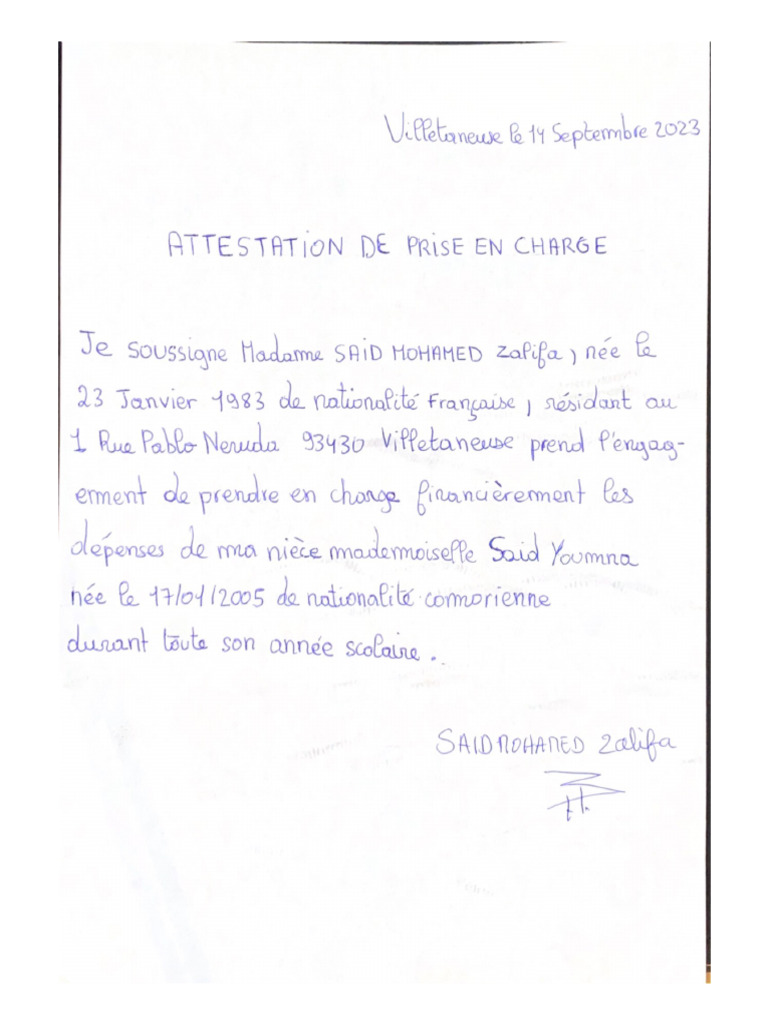 Villetaneuse le 14 Septembre 2023
ATTESTATION DE PRISE EN CHARGE
Je soussigne Madame SAID MOHAMED Zalifa, née le
23 Janvier 1983 de nationalité Française, résidant au
1 Rue Pablo Neruda 93430 Villetaneuse prend l'engag-
ement de prendre en charge financièrement les
dépenses de ma nièce mademoiselle Said Youmna
née le 17/01/2005 de nationalité comorienne
durant toute son année scolaire.
SAID MOHAMED Zalifa